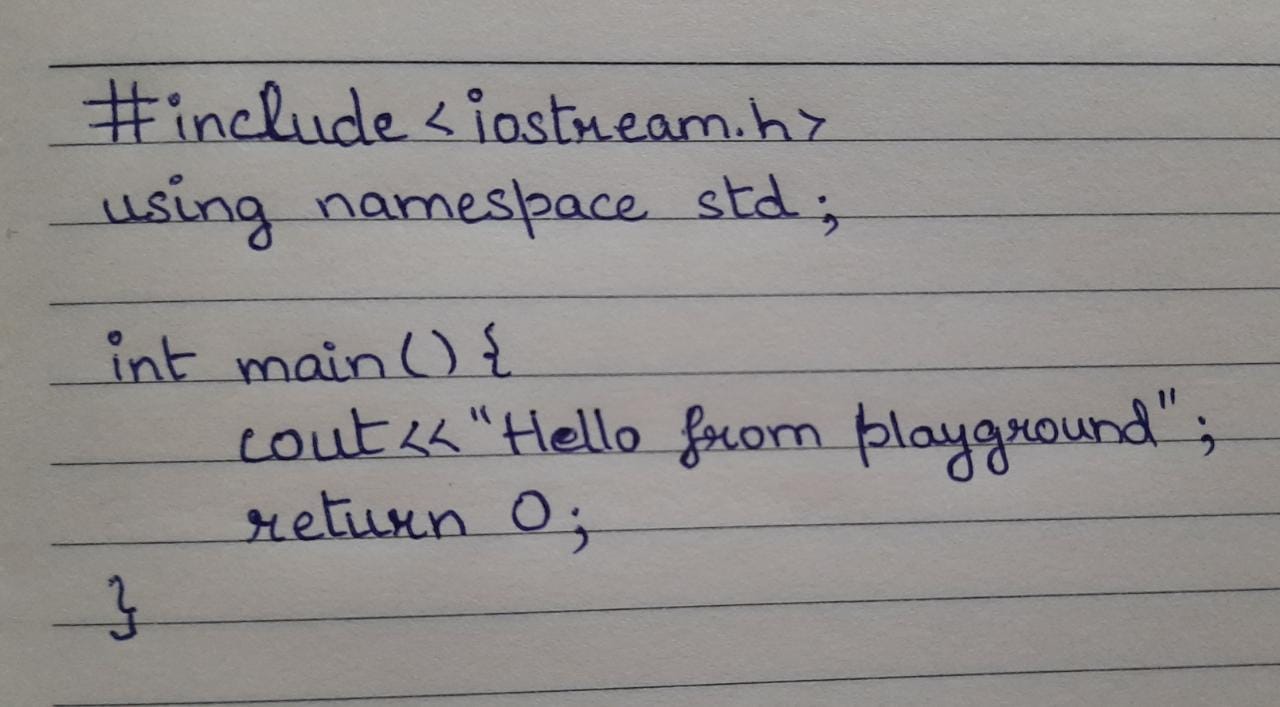 #include<iostream.h>
using namespace std;
int main(){
cout<<"Hello from playground";
return 0;
}